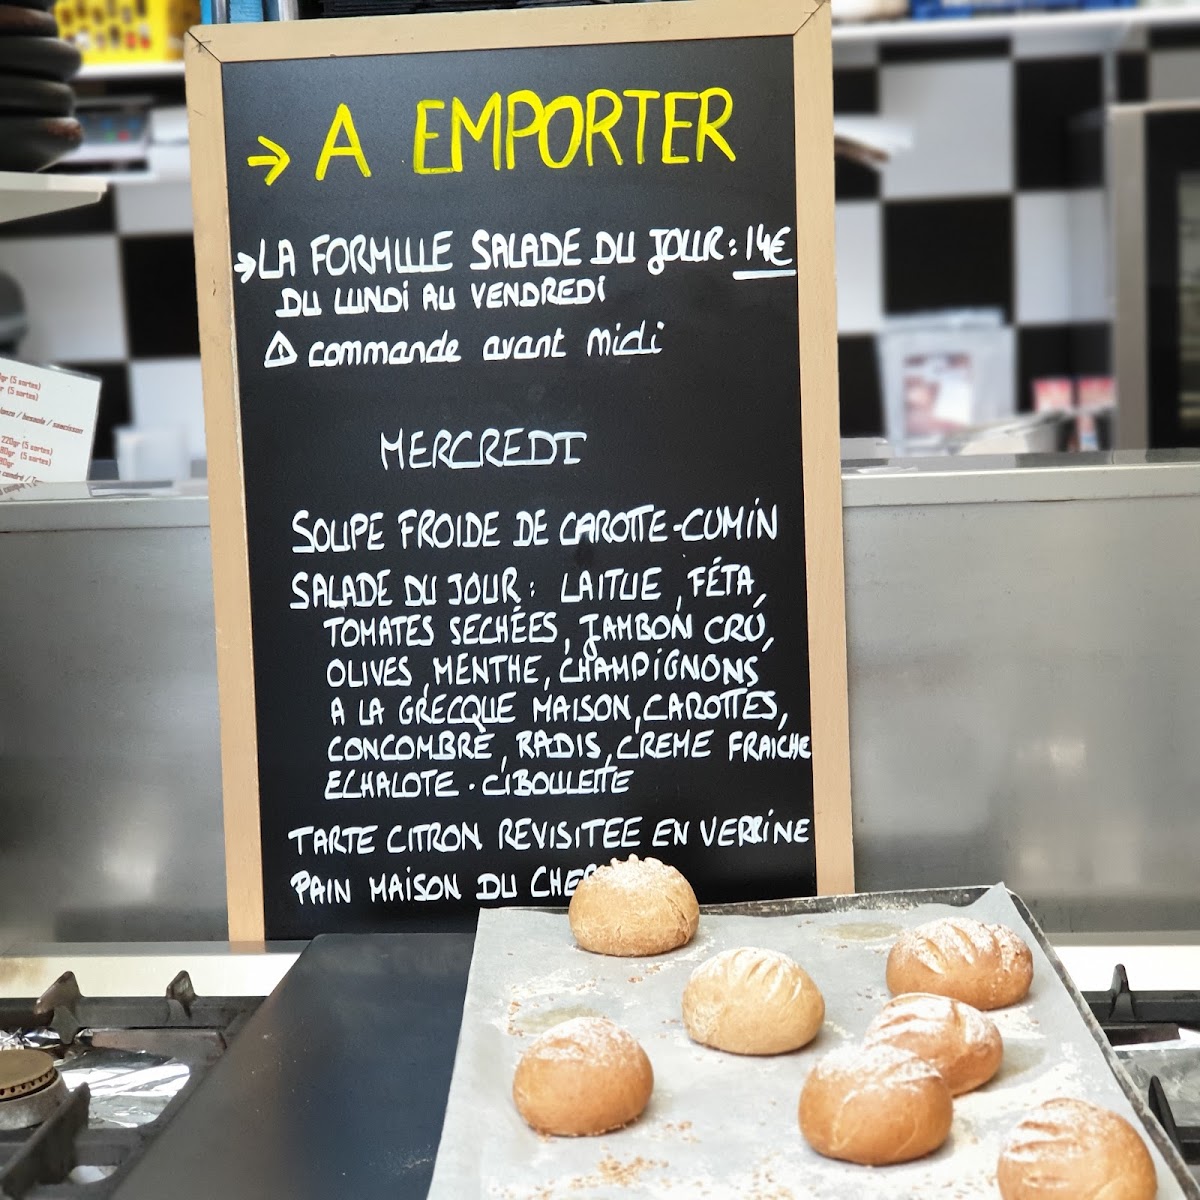 → A EMPORTER
→ LA FORMULE SALADE DU JOUR : 14€
DU LUNDI AU VENDREDI
⚠ commande avant midi
MERCREDI
SOUPE FROIDE DE CAROTTE-CUMIN
SALADE DU JOUR : LAITUE, FÉTA,
TOMATES SECHÉES, JAMBON CRÛ,
OLIVES, MENTHE, CHAMPIGNONS
A LA GRECQUE MAISON, CAROTTES,
CONCOMBRE, RADIS, CREME FRAICHE
ECHALOTE - CIBOULETTE
TARTE CITRON REVISITEE EN VERRINE
PAIN MAISON DU
(5 sortes)
(5 sortes)
220gr (5 sortes)
(5 sortes)